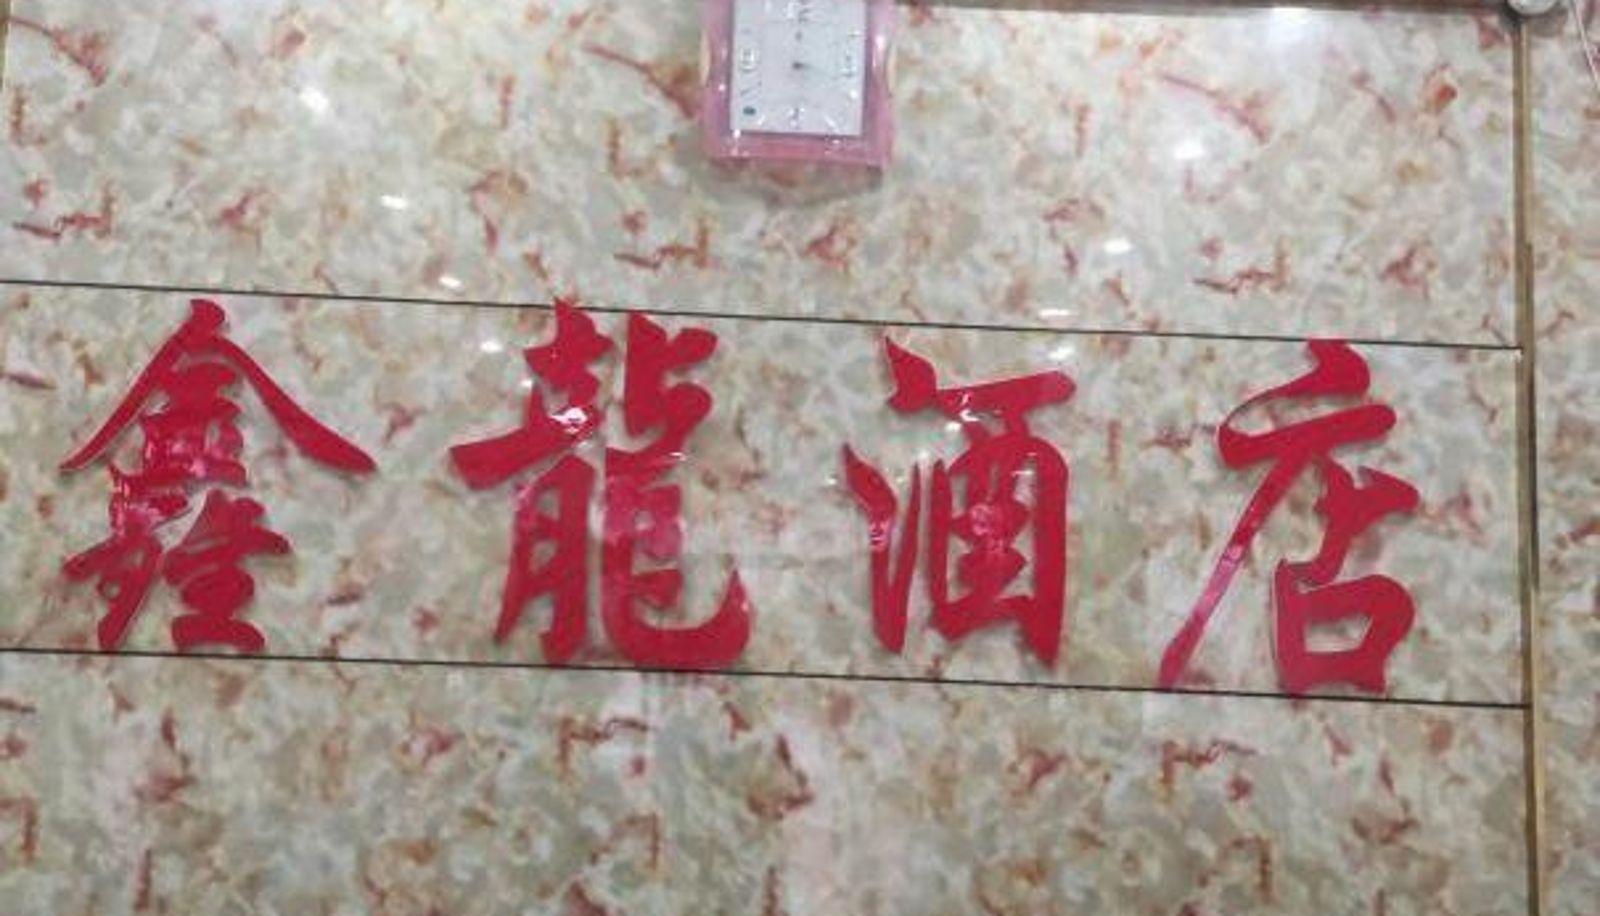 鑫龍酒店